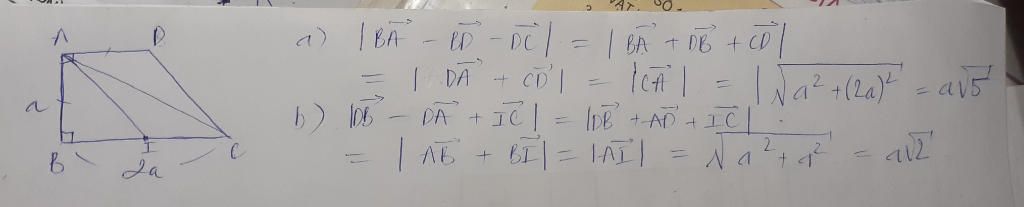 A D
a
B I C
2a
a) |BA→ - BD→ - DC→| = |BA→ + DB→ + CD→|
= |DA→ + CD→| = |CA→| = |√(a² + (2a)²)| = a√5
b) |DB→ - DA→ + IC→| = |DB→ + AD→ + IC→|
= |AB→ + BI→| = |AI→| = √(a² + a²) = a√2